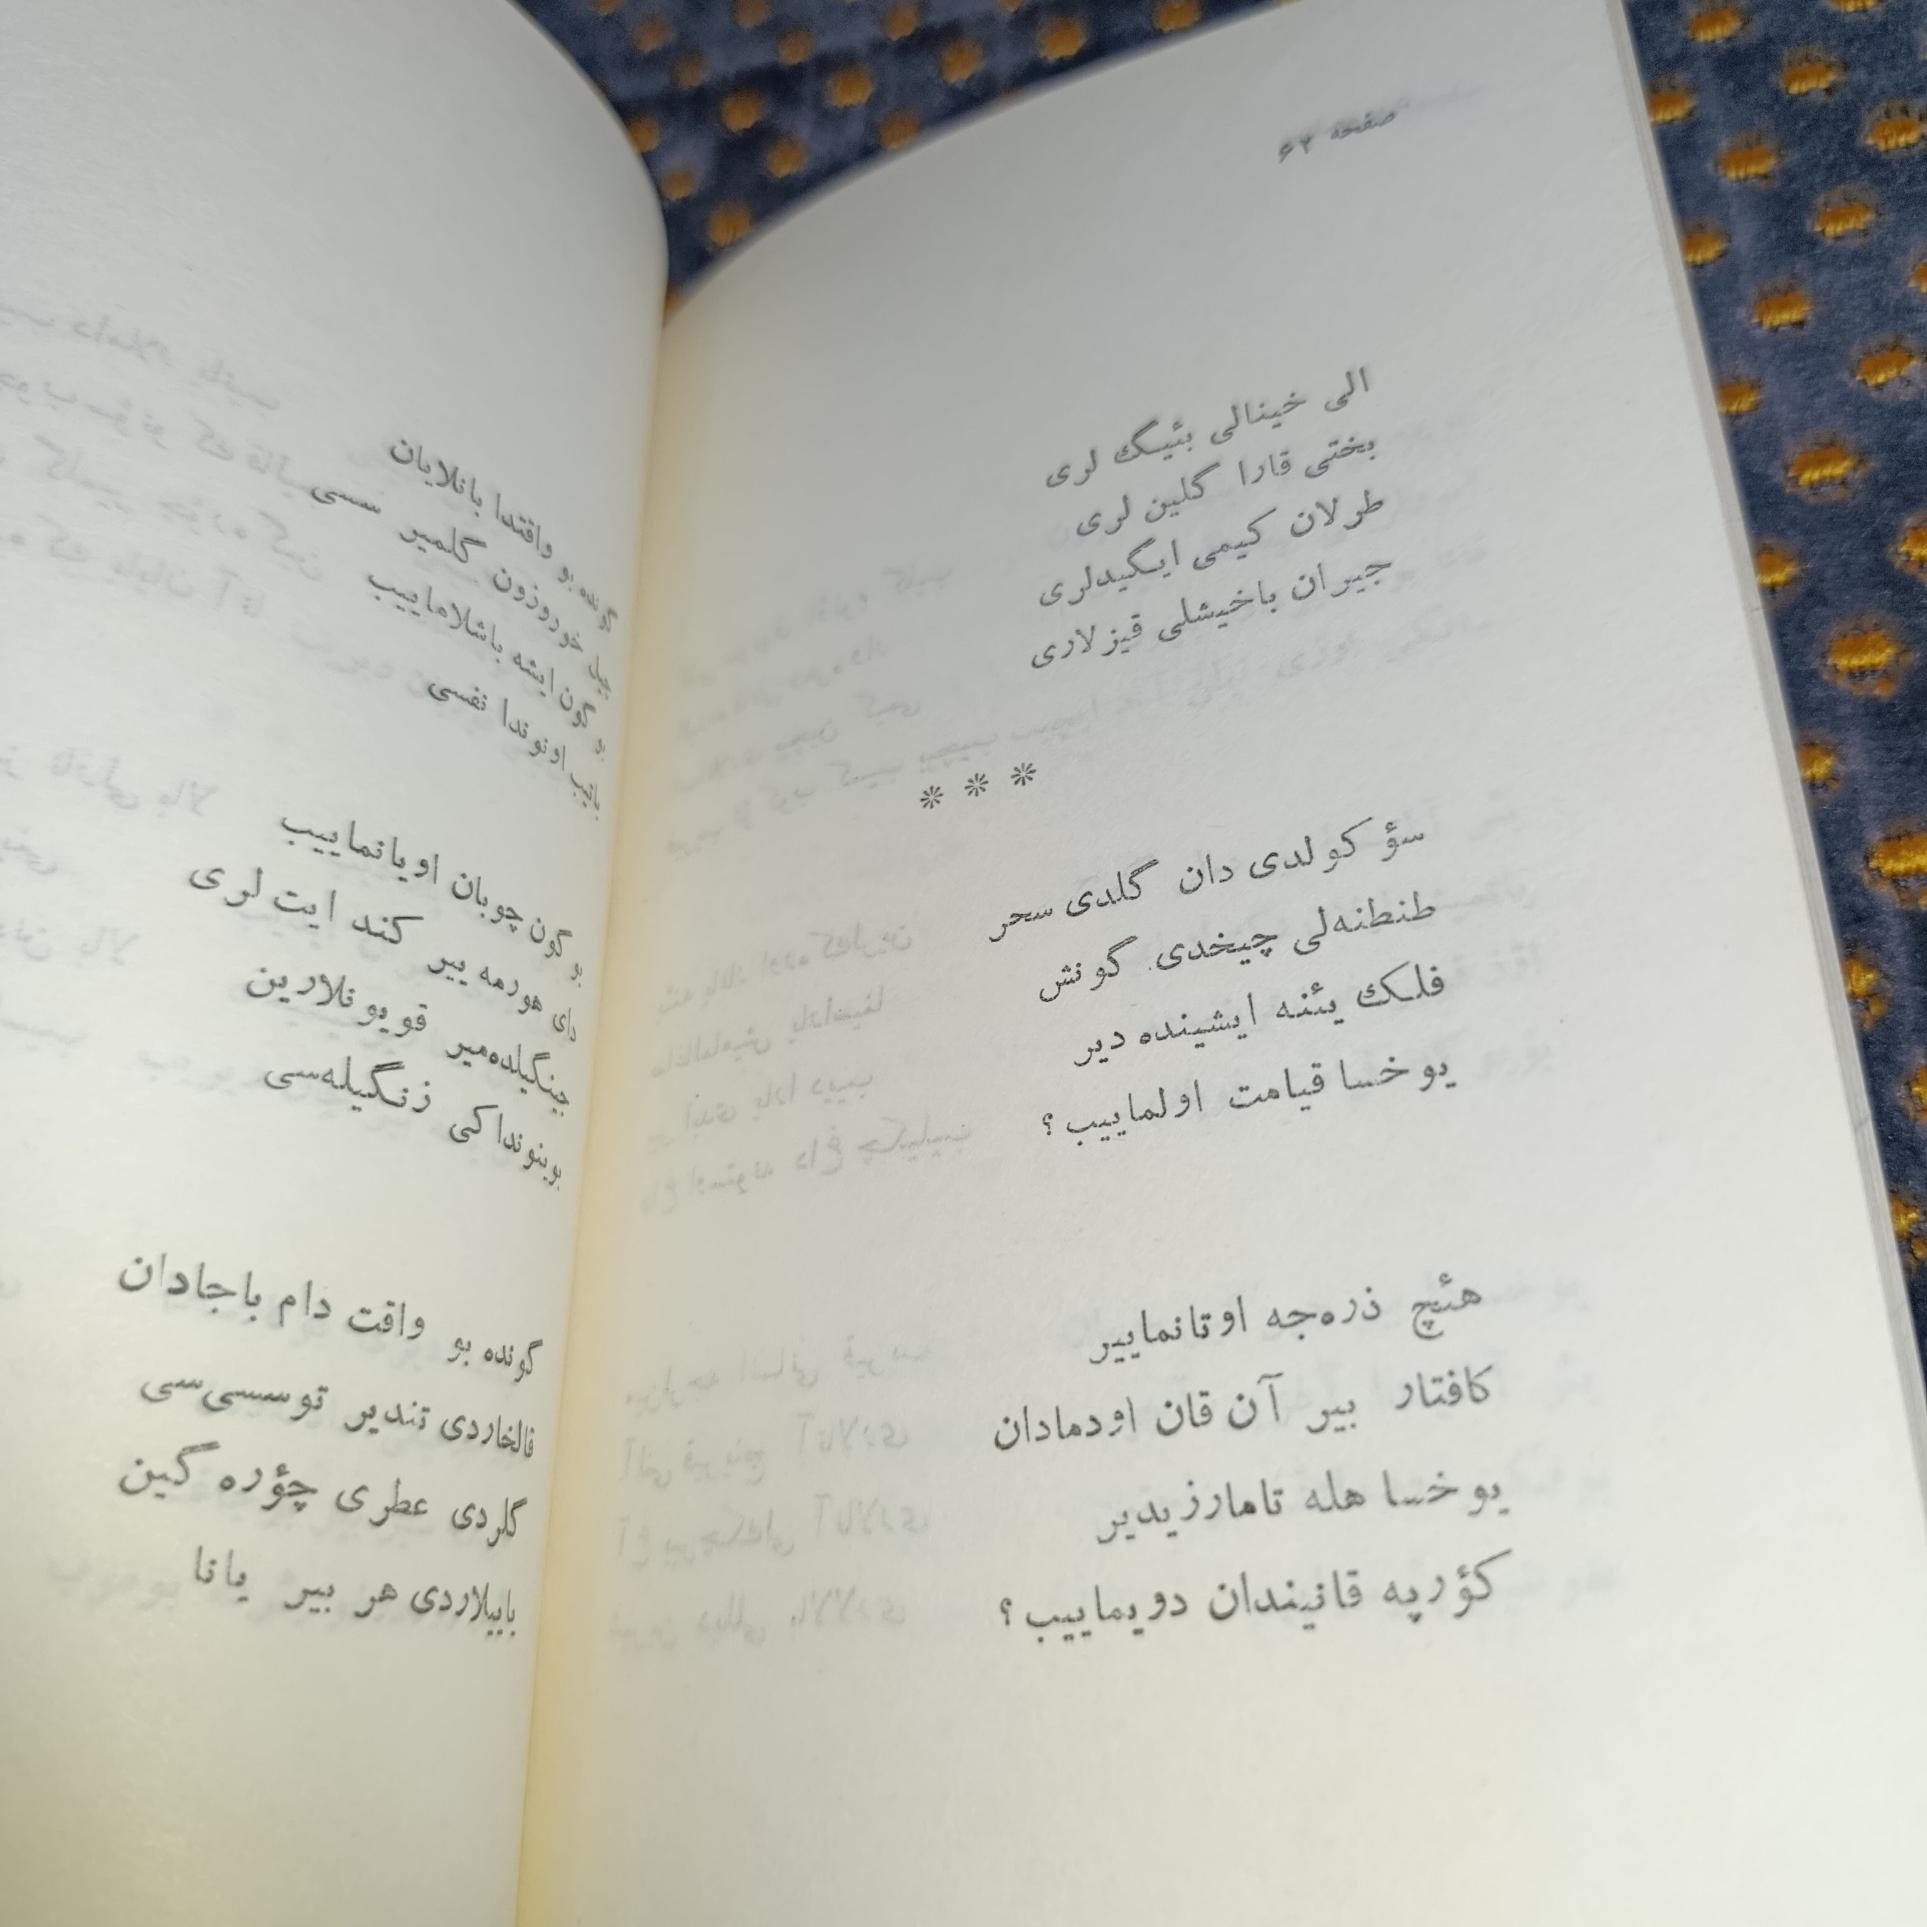 صفحه ۶۲
الی خینالی بئیگ لری
بختی قارا گلین لری
طرلان کیمی ایگیدلری
جیران باخیشلی قیزلاری
* * *
سؤکولدی دان گلدی سحر
طنطنه‌لی چیخدی گونش
فلک یئنه ایشینده دیر
یوخسا قیامت اولماییب؟
هئچ ذره‌جه اوتانماییر
کافتار بیر آن قان اودمادان
یوخسا هله تامارزیدیر
کؤرپه قانیندان دویماییب؟
گونده بو واقتدا بانلایان
چیل خوروزون گلمیر سسی
بو گون ایشه باشلاماییب
باتیب اونوندا نفسی
بو گون چوبان اویانماییب
دای هورمه ییر کند ایت لری
جینگیلده‌میر قویونلارین
بوینونداکی زنگیله‌سی
گونده بو واقت دام باجادان
قالخاردی تندیر توسسی‌سی
گلردی عطری چؤره گین
یاییلاردی هر بیر یانا